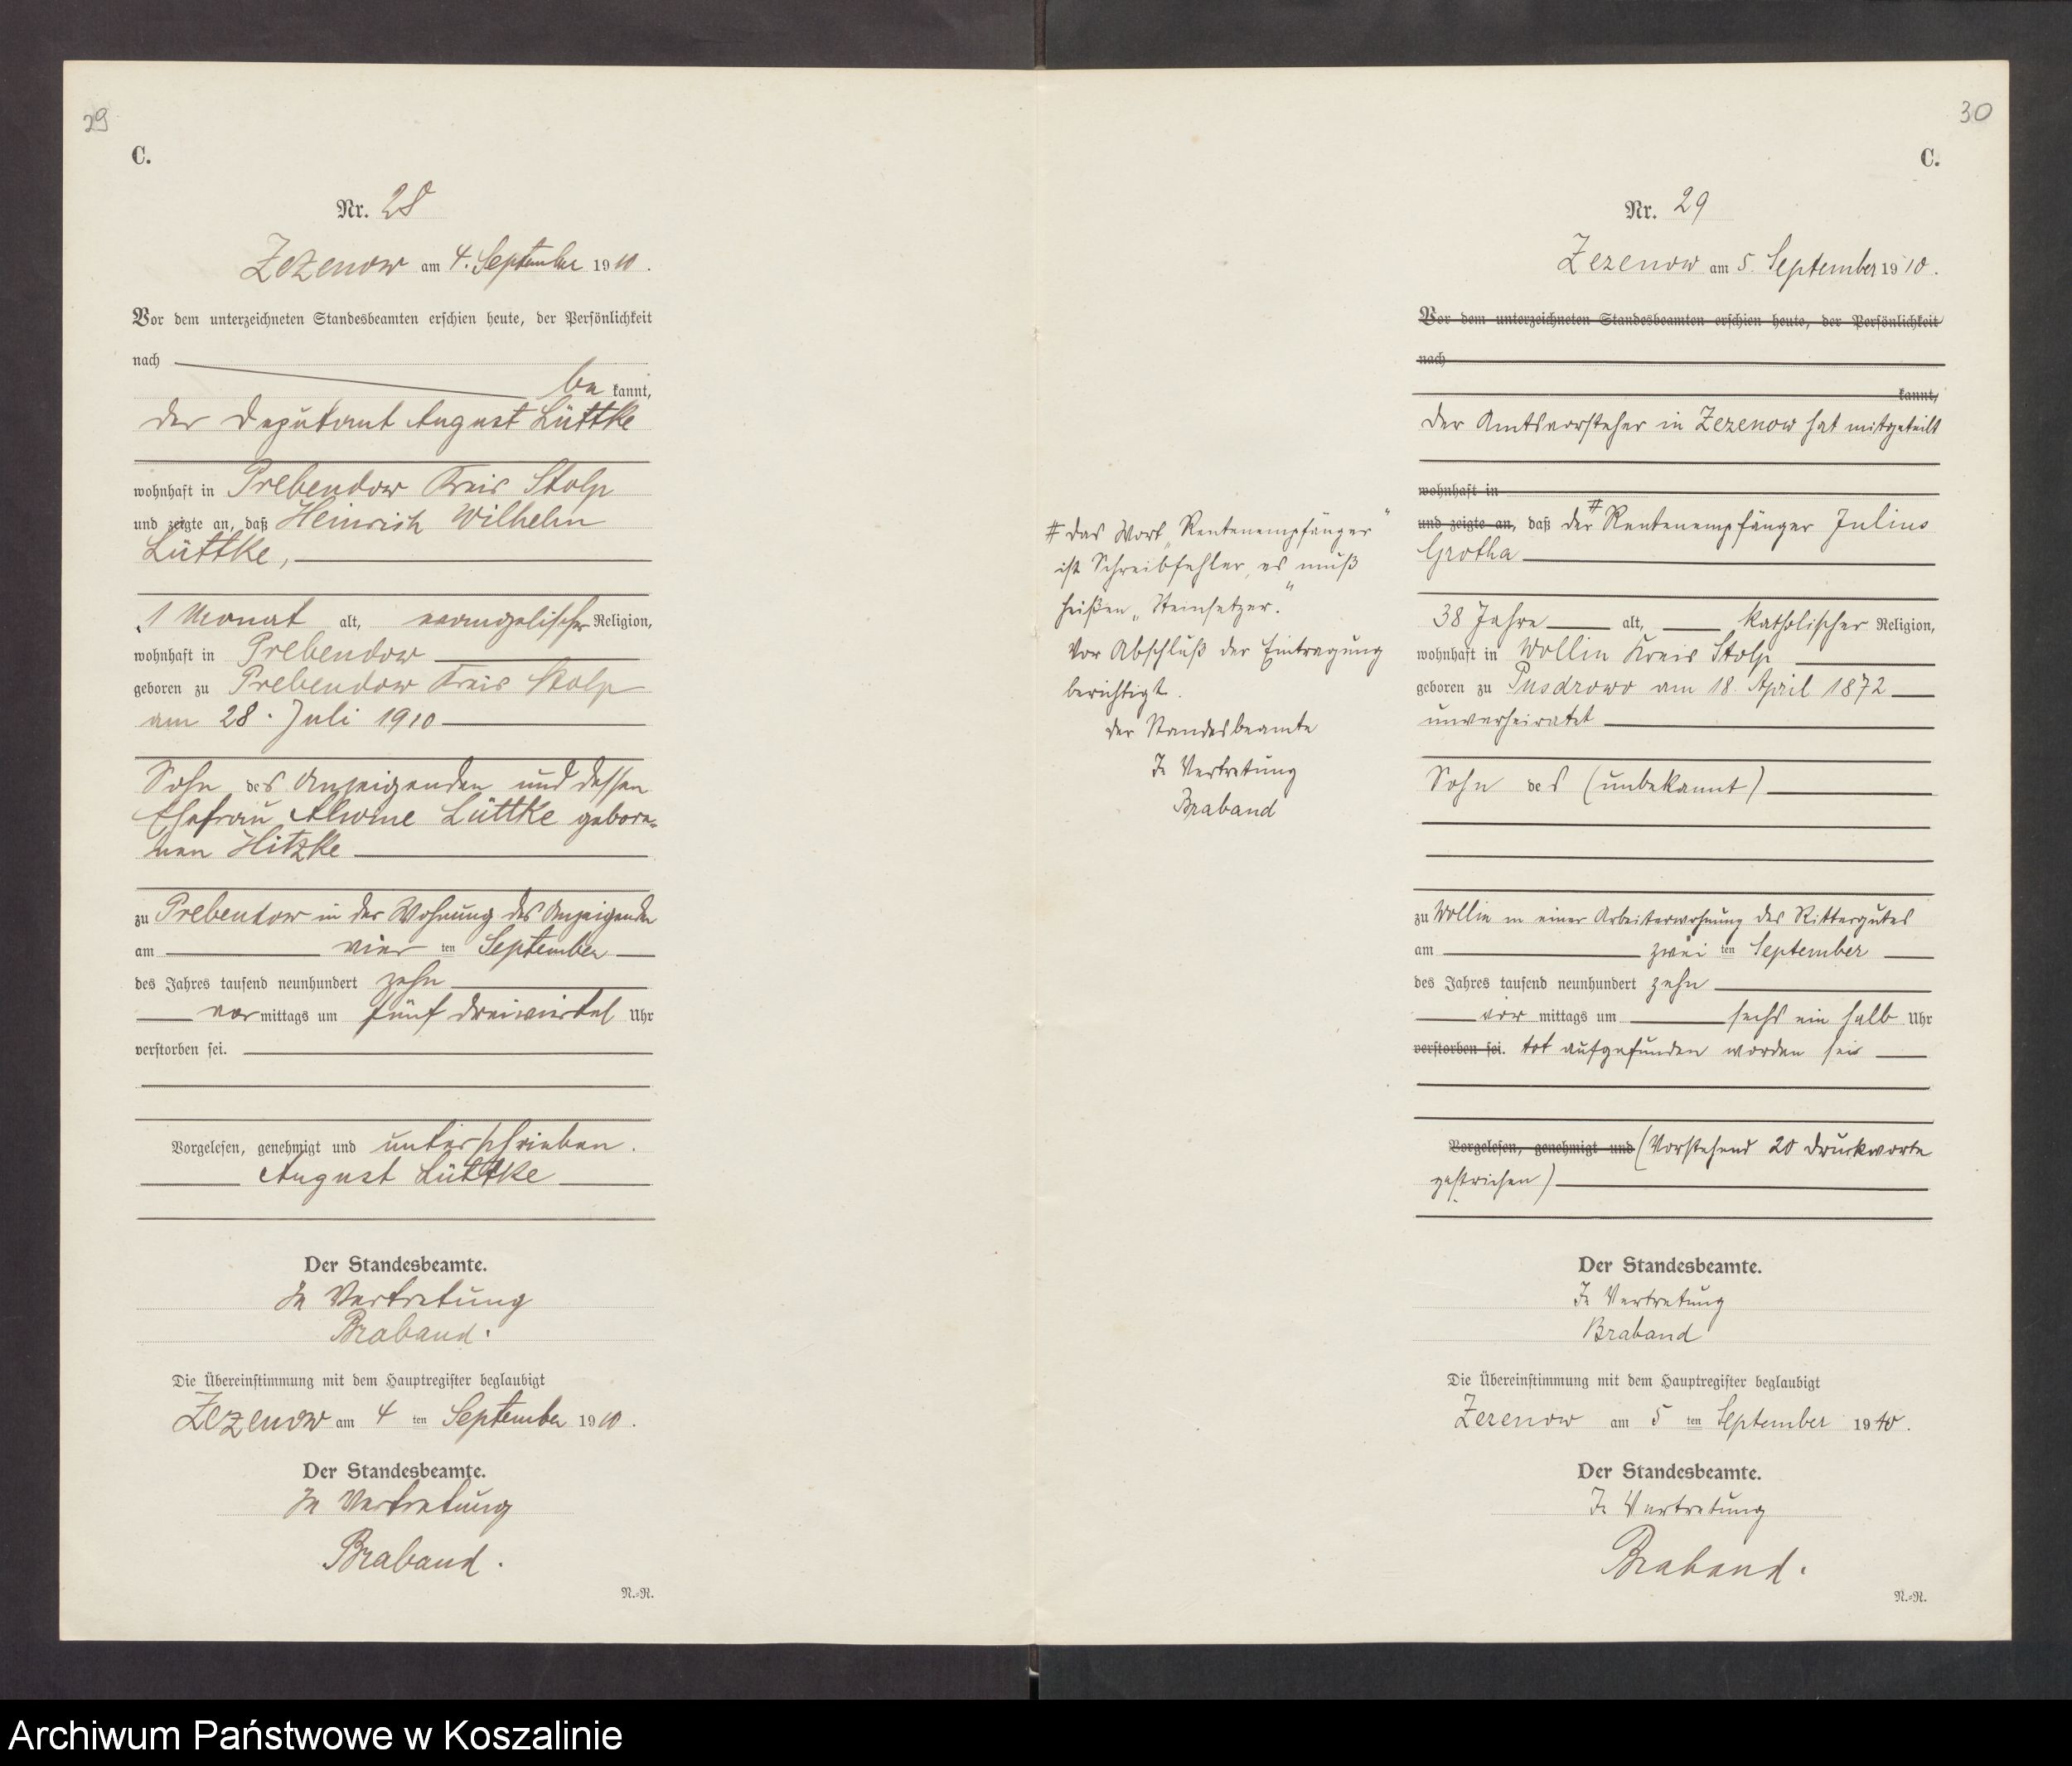 29
C.
Nr. 28
Zezenow am 4. September 1910.
Vor dem unterzeichneten Standesbeamten erschien heute, der Persönlichkeit
nach
be kannt,
der Deputant August Lüttke
wohnhaft in Prebendow Kreis Stolp
und zeigte an, daß Heinrich Wilhelm
Lüttke,
1 Monat alt, evangelischer Religion,
wohnhaft in Prebendow
geboren zu Prebendow Kreis Stolp
am 28. Juli 1910
Sohn des Anzeigenden und dessen
Ehefrau Alwine Lüttke gebore-
nen Hitzke
zu Prebendow in der Wohnung des Anzeigenden
am vier ten September
des Jahres tausend neunhundert zehn
vor mittags um fünf dreiviertel Uhr
verstorben sei.
Vorgelesen, genehmigt und unterschrieben.
August Lüttke
Der Standesbeamte.
In Vertretung
Braband.
Die Übereinstimmung mit dem Hauptregister beglaubigt
Zezenow am 4 ten September 1910.
Der Standesbeamte.
In Vertretung
Braband.
N.=R.
30
C.
Nr. 29
Zezenow am 5. September 1910.
Vor dem unterzeichneten Standesbeamten erschien heute, der Persönlichkeit
nach
kannt,
Der Amtsvorsteher in Zezenow hat mitgeteilt
wohnhaft in
und zeigte an, daß der # Rentenempfänger Julius
Grotha
38 Jahre alt, katholischer Religion,
wohnhaft in Wollin Kreis Stolp
geboren zu Pusdrowo am 18. April 1872
unverheiratet
Sohn des (unbekannt)
zu Wollin in einer Arbeiterwohnung des Rittergutes
am zwei ten September
des Jahres tausend neunhundert zehn
vor mittags um sechs ein halb Uhr
verstorben sei. tot aufgefunden worden sei
Vorgelesen, genehmigt und (Vorstehend 20 Druckworte
gestrichen)
Der Standesbeamte.
In Vertretung
Braband
Die Übereinstimmung mit dem Hauptregister beglaubigt
Zezenow am 5 ten September 1910.
Der Standesbeamte.
In Vertretung
Braband.
N.=R.
# das Wort „Rentenempfänger"
ist Schreibfehler, es muß
heißen „Steinsetzer."
Vor Abschluß der Eintragung
berichtigt.
der Standesbeamte
In Vertretung
Braband
Archiwum Państwowe w Koszalinie